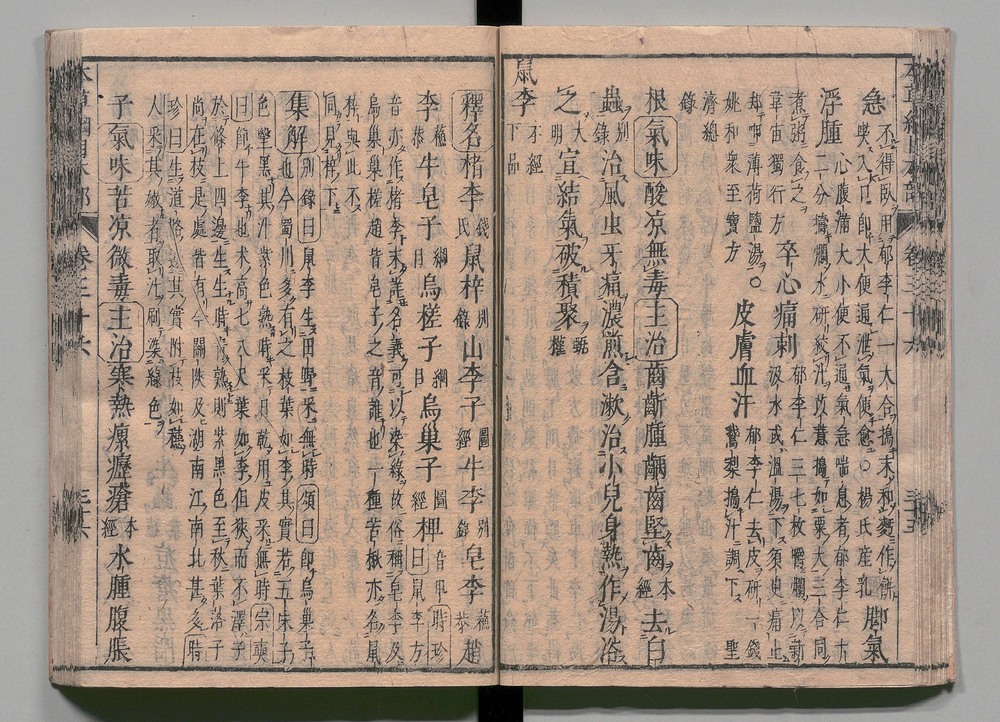 急 不得臥用郁李仁一大合搗末和麪作餅
喫入口即大便通泄氣便愈○楊氏産乳 脚氣
浮腫 心腹滿大小便不通氣急喘息者郁李仁十
二分擣爛水研絞汁薏苡搗如粟大三合同
煮粥食之
韋宙獨行方 卒心痛刺 郁李仁三七枚嚼爛以新
汲水或溫湯下須臾痛止
却呷薄荷鹽湯○
姚和衆至寶方 皮膚血汗 郁李仁去皮研一錢
鵞梨搗汁調下 聖
濟總
錄
根 氣味 酸凉無毒 主治 齒齗腫齲齒堅齒 本經 去白
蟲 別錄 治風虫牙痛濃煎含漱治小兒身熱作湯浴
之 大明 宣結氣破積聚 甄權
鼠李 本經下品
釋名 楮李 錢氏 鼠梓 別錄 山李子 圖經 牛李 別錄 皂李 蘇恭 趙
李 蘇恭 牛皂子 綱目 烏槎子 綱目 烏巢子 圖經 椑 音卑 時珍
曰鼠李方
音亦作楮李未詳名義可以染綠故俗稱皂李及
烏巢巢槎趙皆皂子之音訛也一種苦楸亦名鼠
梓與此不
同見梓下
集解 別錄曰鼠李生田野采無時 頌曰即烏巢子
也今蜀川多有之枝葉如李其實若五味子
色瑿黑其汁紫色熟時采日乾用皮采無時 宗奭
曰即牛李也木高七八尺葉如李但狹而不澤子
於條上四邊生生時青熟則紫黑色至秋葉落子
尚在枝是處皆有今關陝及湖南江南北甚多 時
珍曰生道路邊其實附枝如穗
人采其嫩者取汁刷染綠色
子 氣味 苦凉微毒 主治 寒熱瘰癧瘡 本經 水腫腹脹
卷三十六
卷三十六